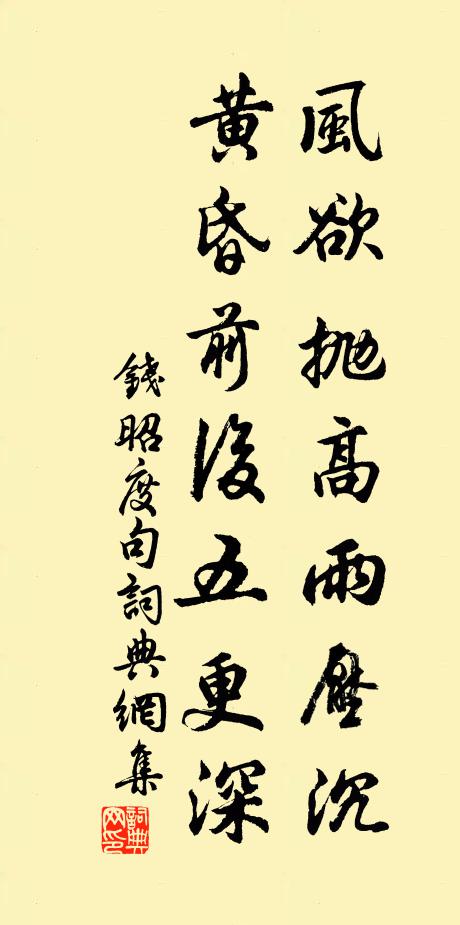 風欲抛高雨壓沉
黃昏前後五更深
錢昭度句詞典網集
詞典網印